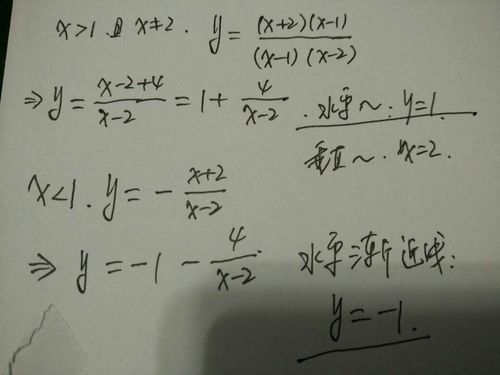 x>1 且 x≠2. y = (x+2)(x-1) / (x-1)(x-2)
⇒ y = x-2+4 / x-2 = 1 + 4 / x-2 . 水平~. y=1.
垂直~. x=2.
x<1. y = - x+2 / x-2
⇒ y = -1 - 4 / x-2. 水平渐近线:
y = -1.